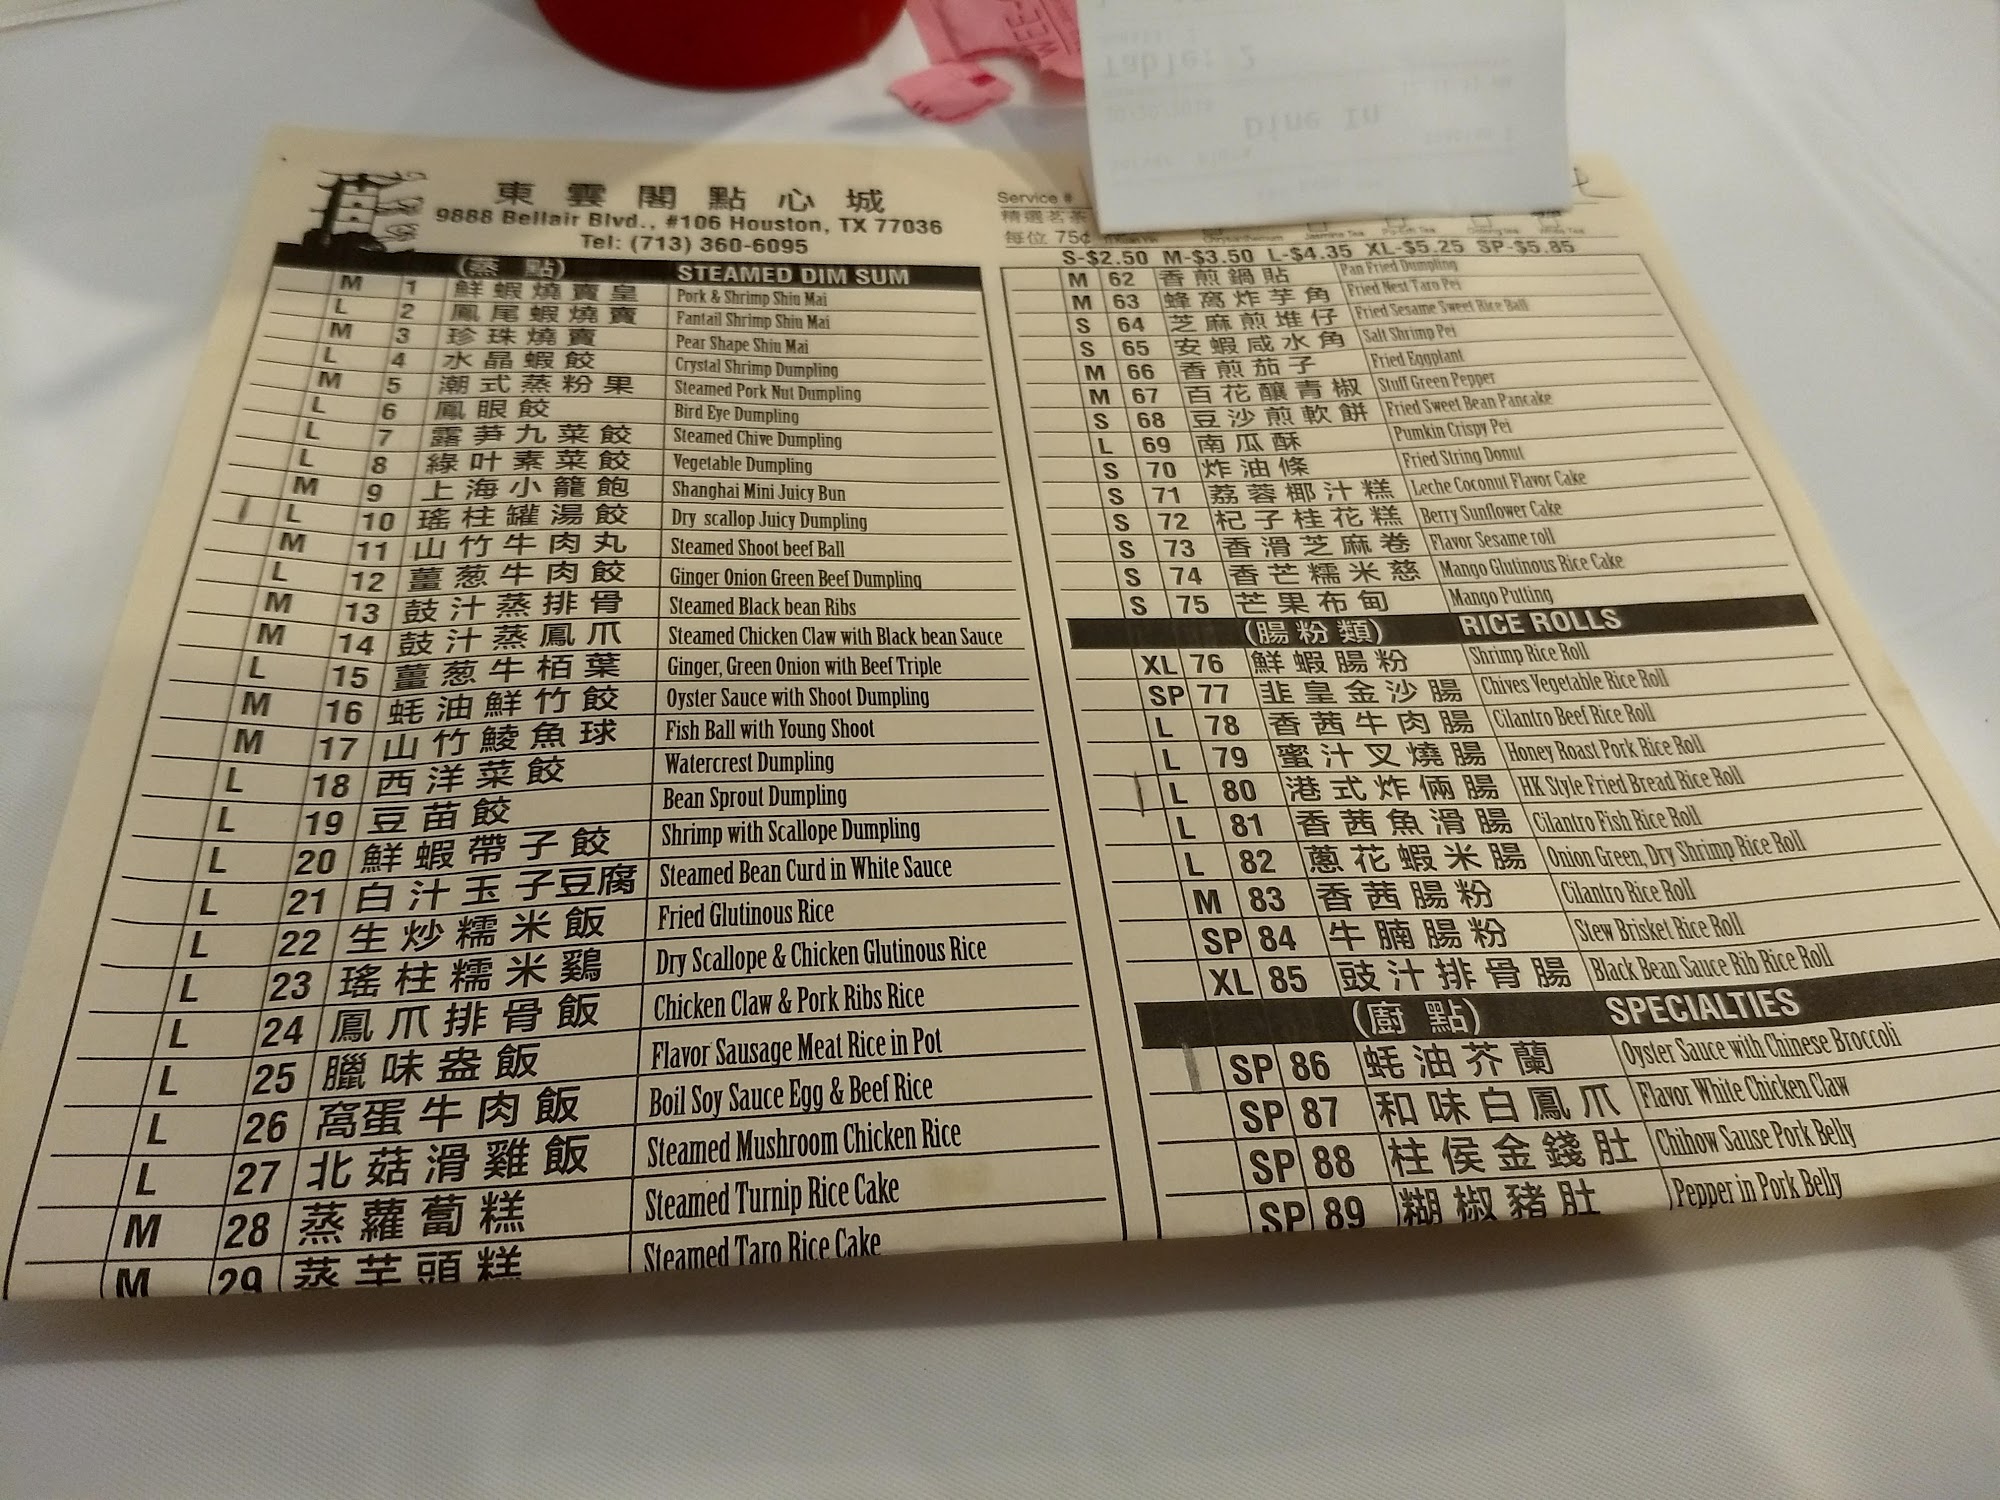 東雲閣點心城
9888 Bellair Blvd., #106 Houston, TX 77036
Tel: (713) 360-6095
(蒸點) STEAMED DIM SUM
M 1 鮮蝦燒賣皇 Pork & Shrimp Shiu Mai
L 2 鳳尾蝦燒賣 Fantail Shrimp Shiu Mai
M 3 珍珠燒賣 Pear Shape Shiu Mai
L 4 水晶蝦餃 Crystal Shrimp Dumpling
M 5 潮式蒸粉果 Steamed Pork Nut Dumpling
L 6 鳳眼餃 Bird Eye Dumpling
L 7 露笋九菜餃 Steamed Chive Dumpling
L 8 綠叶素菜餃 Vegetable Dumpling
M 9 上海小籠飽 Shanghai Mini Juicy Bun
L 10 瑤柱罐湯餃 Dry scallop Juicy Dumpling
M 11 山竹牛肉丸 Steamed Shoot beef Ball
L 12 薑葱牛肉餃 Ginger Onion Green Beef Dumpling
M 13 鼓汁蒸排骨 Steamed Black bean Ribs
M 14 鼓汁蒸鳳爪 Steamed Chicken Claw with Black bean Sauce
L 15 薑葱牛栢葉 Ginger, Green Onion with Beef Triple
M 16 蚝油鮮竹餃 Oyster Sauce with Shoot Dumpling
M 17 山竹鯪魚球 Fish Ball with Young Shoot
L 18 西洋菜餃 Watercrest Dumpling
L 19 豆苗餃 Bean Sprout Dumpling
L 20 鮮蝦帶子餃 Shrimp with Scallope Dumpling
L 21 白汁玉子豆腐 Steamed Bean Curd in White Sauce
L 22 生炒糯米飯 Fried Glutinous Rice
L 23 瑤柱糯米鷄 Dry Scallope & Chicken Glutinous Rice
L 24 鳳爪排骨飯 Chicken Claw & Pork Ribs Rice
L 25 臘味盎飯 Flavor Sausage Meat Rice in Pot
L 26 窩蛋牛肉飯 Boil Soy Sauce Egg & Beef Rice
L 27 北菇滑雞飯 Steamed Mushroom Chicken Rice
M 28 蒸蘿蔔糕 Steamed Turnip Rice Cake
M 29 蒸芋頭糕 Steamed Taro Rice Cake
Service #
精選茗茶
每位 75¢ Chrysanthemum Jasmine Tea
S-$2.50 M-$3.50 L-$4.35 XL-$5.25 SP-$5.85
M 62 香煎鍋貼 Pan Fried Dumpling
M 63 蜂窩炸芋角 Fried Nest Taro Pei
S 64 芝麻煎堆仔 Fried Sesame Sweet Rice Ball
S 65 安蝦咸水角 Salt Shrimp Pei
M 66 香煎茄子 Fried Eggplant
M 67 百花釀青椒 Stuff Green Pepper
S 68 豆沙煎軟餅 Fried Sweet Bean Pancake
L 69 南瓜酥 Pumkin Crispy Pei
S 70 炸油條 Fried String Donut
S 71 荔蓉椰汁糕 Leche Coconut Flavor Cake
S 72 杞子桂花糕 Berry Sunflower Cake
S 73 香滑芝麻卷 Flavor Sesame roll
S 74 香芒糯米慈 Mango Glutinous Rice Cake
S 75 芒果布甸 Mango Putting
(腸粉類) RICE ROLLS
XL 76 鮮蝦腸粉 Shrimp Rice Roll
SP 77 韭皇金沙腸 Chives Vegetable Rice Roll
L 78 香茜牛肉腸 Cilantro Beef Rice Roll
L 79 蜜汁叉燒腸 Honey Roast Pork Rice Roll
L 80 港式炸倆腸 HK Style Fried Bread Rice Roll
L 81 香茜魚滑腸 Cilantro Fish Rice Roll
L 82 蔥花蝦米腸 Onion Green, Dry Shrimp Rice Roll
M 83 香茜腸粉 Cilantro Rice Roll
SP 84 牛腩腸粉 Stew Brisket Rice Roll
XL 85 豉汁排骨腸 Black Bean Sauce Rib Rice Roll
(廚點) SPECIALTIES
SP 86 蚝油芥蘭 Oyster Sauce with Chinese Broccoli
SP 87 和味白鳳爪 Flavor White Chicken Claw
SP 88 柱侯金錢肚 Chihow Sause Pork Belly
SP 89 糊椒豬肚 Pepper in Pork Belly
Table: 2
Dine In